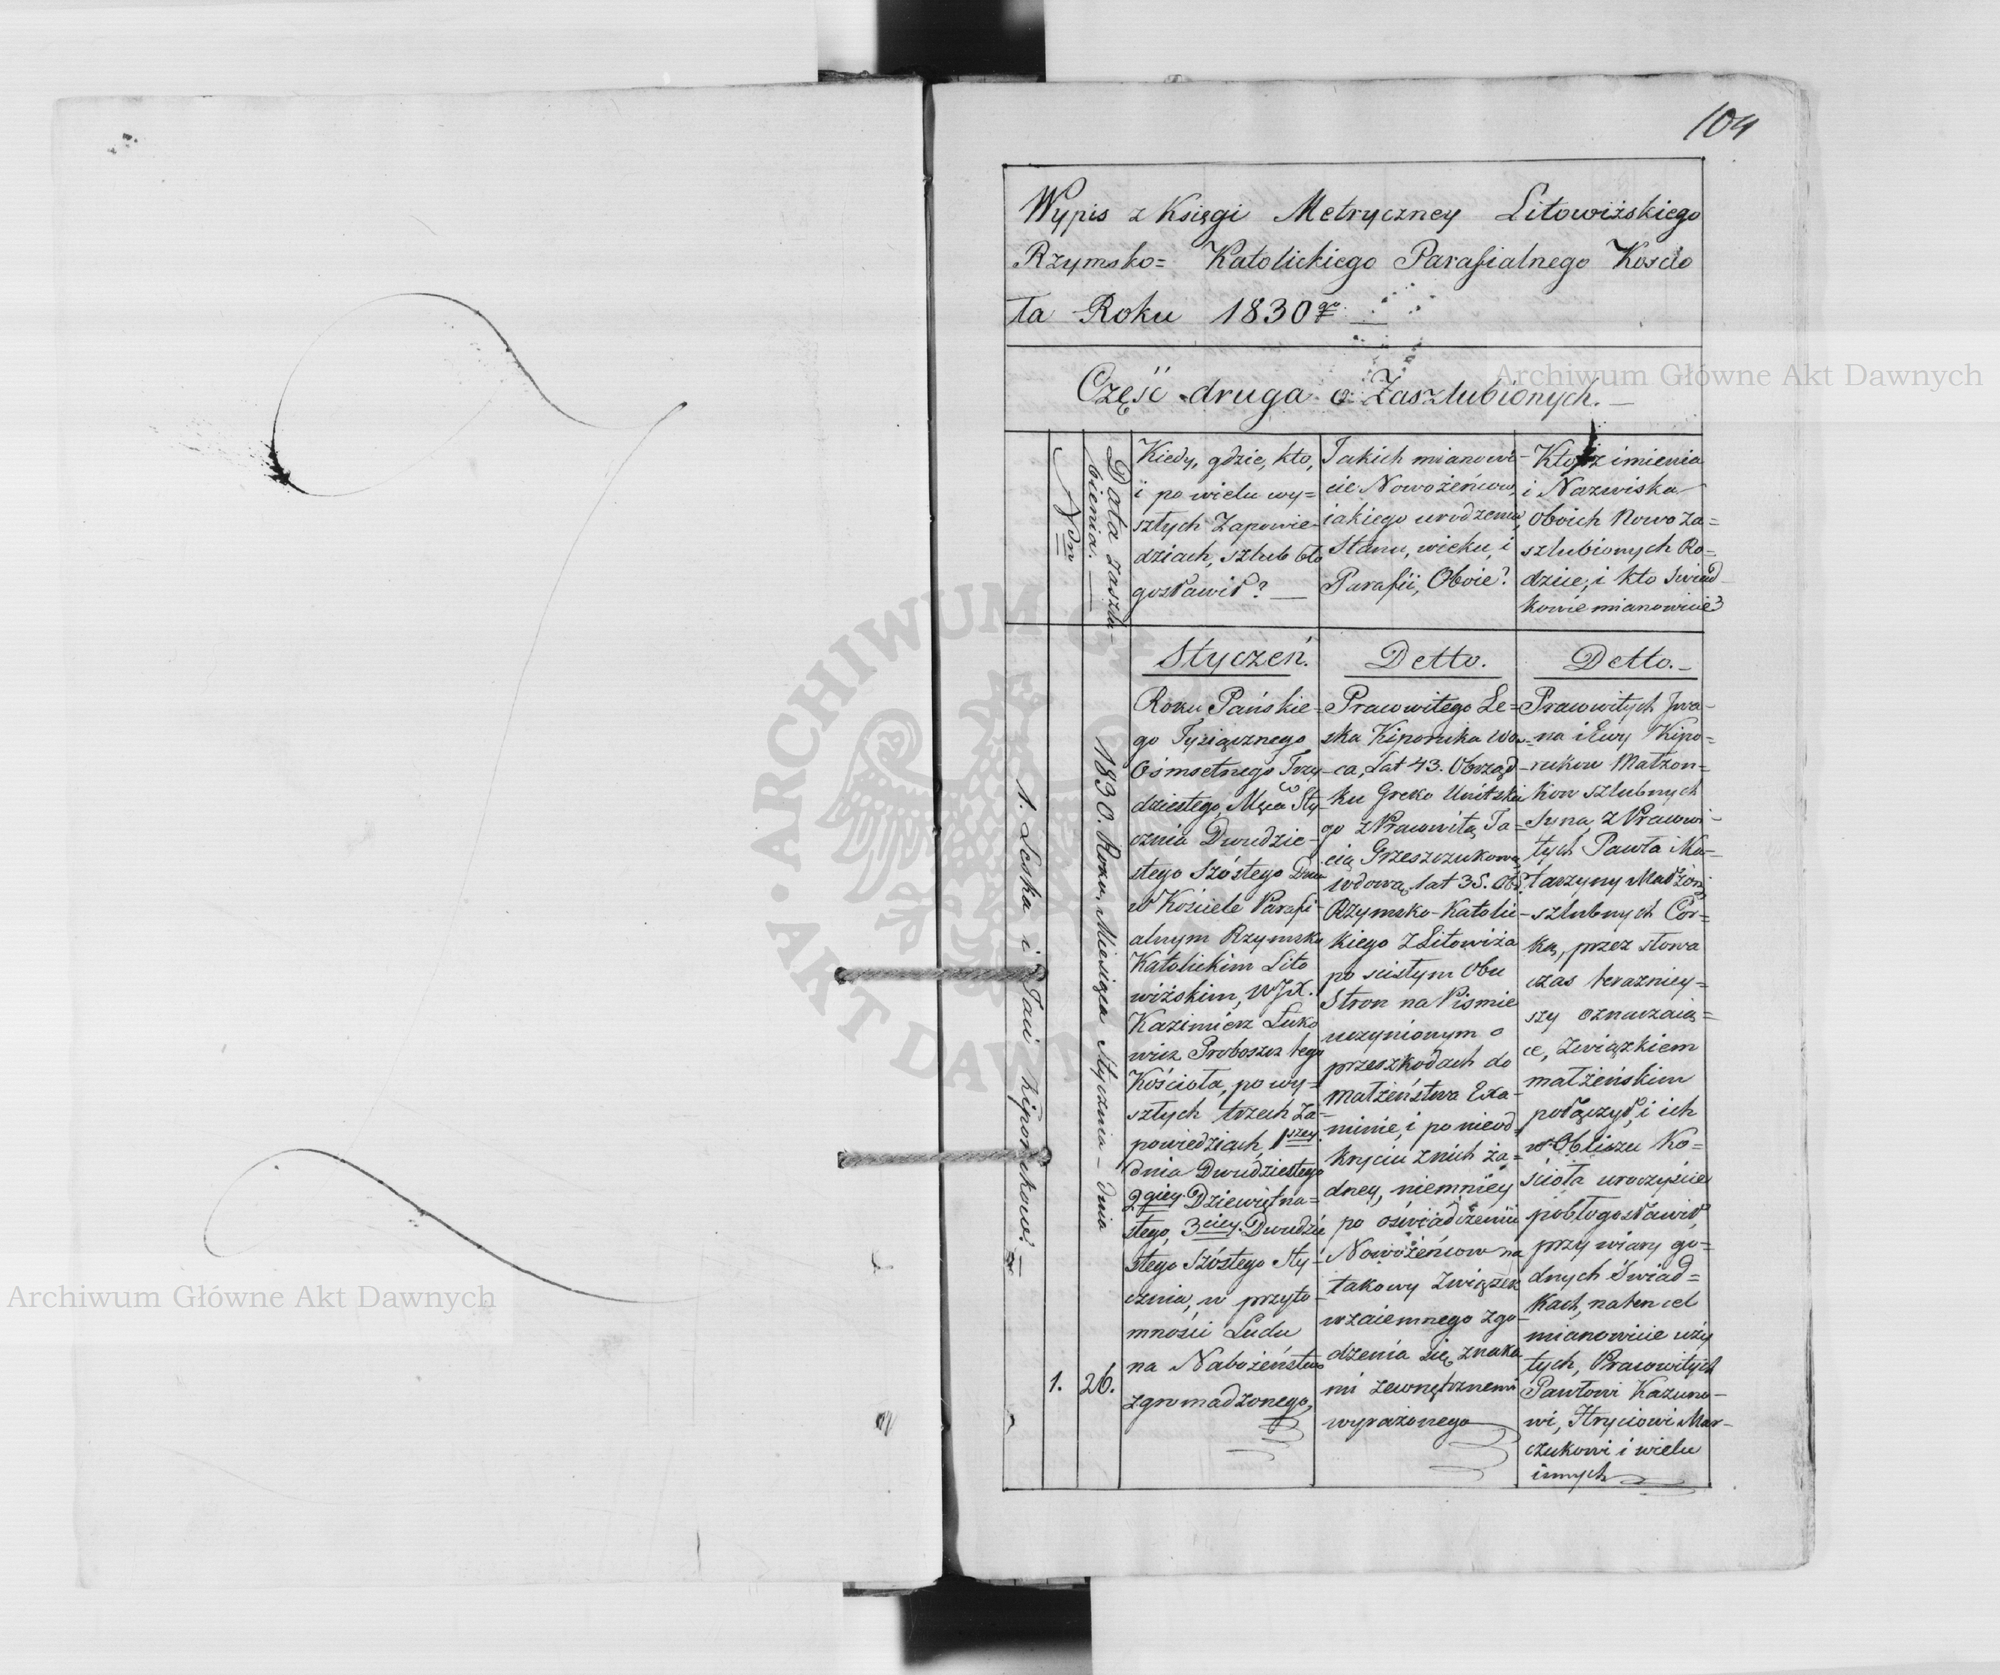 104
Wypis z Księgi Metryczney Litowiżskiego
Rzymsko= Katolickiego Parafialnego Kościo
ła Roku 1830go
Część druga o Zaszlubionych.
Ndn
Data zaszlu-
bienia.
Kiedy, gdzie, kto,
i po wielu wy=
szłych Zapowie
dziach, szlub bło
gosławił?
Jakich mianowi-
cie Nowożeńcow,
jakiego urodzenia,
Stanu, wieku, i
Parafii, Oboie?
Kto z imienia
i Nazwiska
Oboich Nowo za=
szlubionych Ro=
dzice, i kto Swiad
kowie mianowicie?
Styczeń.
Detto.
Detto.
1. Leska i Taci Kiporukow.
1.
1830. Roku, Miesiąca Stycznia - Dnia
26.
Roku Pańskie=
go Tysiącznego
Ośmsetnego Trzy
dziestego, Mca Sty
cznia Dwudzie-
stego Szóstego Dnia
w Kościele Parafi-
alnym Rzymsko
Katolickim Lito
wiżskim, WJX.
Kazimierz Luko
wicz Proboszcz tego
Kościoła, po wy=
szłych trzech Za=
powiedziach, 1szey
dnia Dwudziestego
2giey Dziewiętna=
stego, 3ciey Dwudzie
stego Szóstego Sty-
cznia, w przyto-
mności Ludu
na Nabożeństwo
zgromadzonego,
Pracowitego Le=
ska Kiporuka wdo=
ca, Lat 43. Obrząd
ku Greko Unitskie
go z Pracowitą Ta=
cią Grzeszczukową
wdową, lat 35. Ob.
Rzymsko-Katolic
kiego z Litowiża
po scisłym Obu
Stron na Pismie
uczynionym o
przeszkodach do
małżeństwa Exa-
minie, i po nieod=
kryciu z nich ża=
dney, niemniey
po oświadczeniu
Nowożeńcow na
takowy Związek
wzaiemnego zgo
dzenia się znaka
mi zewnętrznemi
wyrażonego
Pracowitych Jwa-
na i Ewy Kipo=
rukow Małżon=
kow szlubnych
Syna, z Pracowi-
tych Pawła i Ka-
tarzyny Małżon.
szlubnych Cór=
ką, przez słowa
czas terazniey=
szy oznaczaią=
ce, Związkiem
małżeńskim
połączył, i ich
w Obliczu Ko=
ścioła uroczyście
pobłogosławił
przy wiary go=
dnych Świad=
kach, na ten cel
mianowicie uży
tych, Pracowitych
Pawłowi Kazuno-
wi, Hryciowi Mar-
czukowi i wielu
innych
Archiwum Główne Akt Dawnych
Archiwum Główne Akt Dawnych